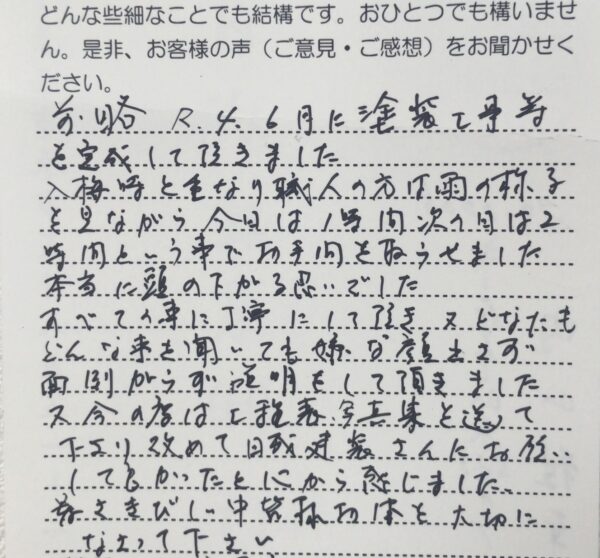 どんな些細なことでも結構です。おひとつでも構いませ
ん。是非、お客様の声（ご意見・ご感想）をお聞かせく
ださい。
前略 R.4.6月に塗装工事等
を完成して頂きました
入梅時と重なり職人の方は雨の様子
を見ながら今日は1時間次の日は2
時間という事でお手間を取らせました
本当に頭の下がる思いでした
すべての事に丁寧にして頂き又どなたも
どんな事を聞いても嫌な顔もさず
面倒がらず説明をして頂きました
又今の度は工程表写真集を送って
下さり改めて日成建装さんにお願い
して良かったと心から感じました。
暑さきびしい中皆様お体を大切に
なさって下さい